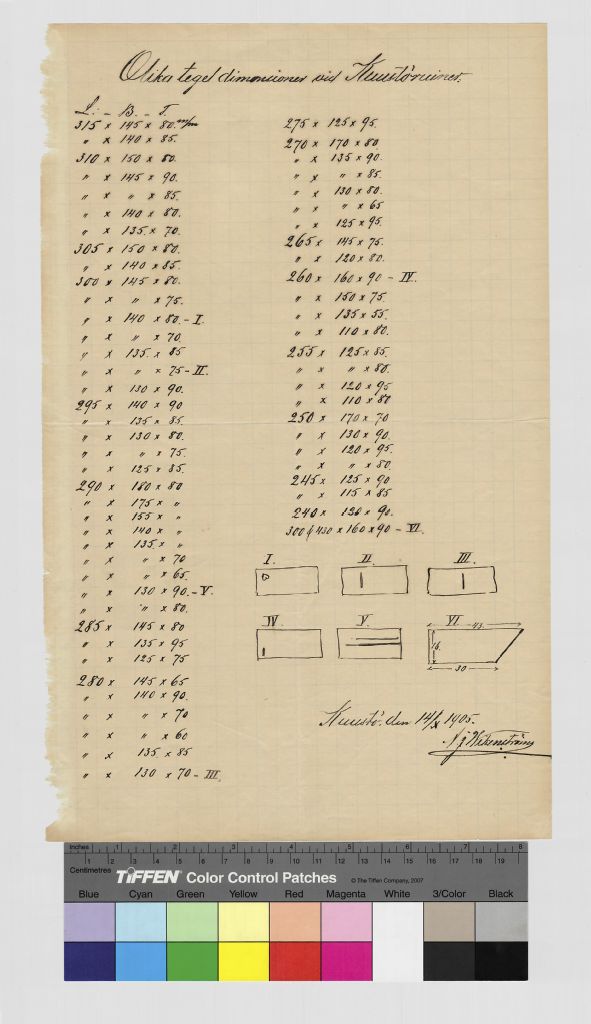 Olika tegel dimensioner vid Kuustö ruiner.
L. - B. - T.
315 x 145 x 80 m/m
" x 140 x 85.
310 x 150 x 80.
" x 145 x 90.
" x " x 85.
" x 140 x 80.
" x 135 x 70.
305 x 150 x 80.
" x 140 x 85.
300 x 145 x 80.
" x " x 75.
" x 140 x 80. - I.
" x " x 70.
" x 135 x 85
" x " x 75 - II.
" x 130 x 90.
295 x 140 x 90
" x 135 x 85.
" x 130 x 80.
" x " x 75.
" x 125 x 85.
290 x 180 x 80
" x 175 x "
" x 155 x "
" x 140 x "
" x 135 x "
" x " x 70
" x " x 65.
" x 130 x 90. - V.
" x " x 80.
285 x 145 x 80
" x 135 x 95
" x 125 x 75
280 x 145 x 65
" x 140 x 90.
" x " x 70
" x " x 60
" x 135 x 85
" x 130 x 70 - III.
275 x 125 x 95.
270 x 170 x 80
" x 135 x 90.
" x " x 85.
" x 130 x 80.
" x " x 65
" x 125 x 95.
265 x 145 x 75.
" x 120 x 80.
260 x 160 x 90 - IV.
" x 150 x 75.
" x 135 x 55.
" x 110 x 80.
255 x 125 x 85.
" x " x 80.
" x 120 x 95
" x 110 x 80
250 x 170 x 70
" x 130 x 90.
" x 120 x 95.
" x " x 80.
245 x 125 x 90
" x 115 x 85
240 x 130 x 90.
300 / 430 x 160 x 90 - VI.
I. II. III.
IV. V. VI.
43.
16.
30
Kuustö. den 14/X 1905.
Inches 1 2 3 4 5 6 7 8
Centimetres 1 2 3 4 5 6 7 8 9 10 11 12 13 14 15 16 17 18 19
TIFFEN Color Control Patches © The Tiffen Company, 2007
Blue Cyan Green Yellow Red Magenta White 3/Color Black